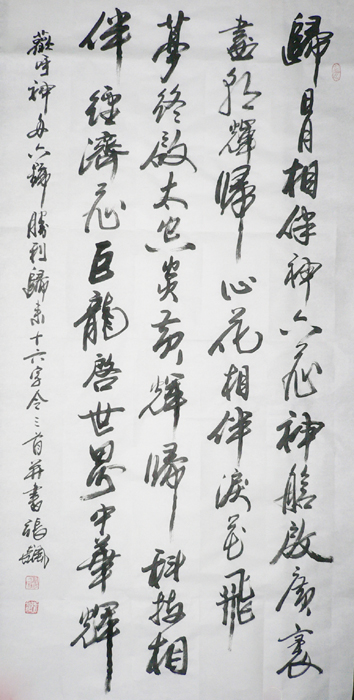 歸日月相伴神六飛神艙啟廣袤
畫輝歸心花相伴淚花飛
夢終啟太空炎黃輝歸科技相
伴經濟飛巨龍啓世界中華輝
歡呼神舟六號勝利歸來十六字令三首并書張